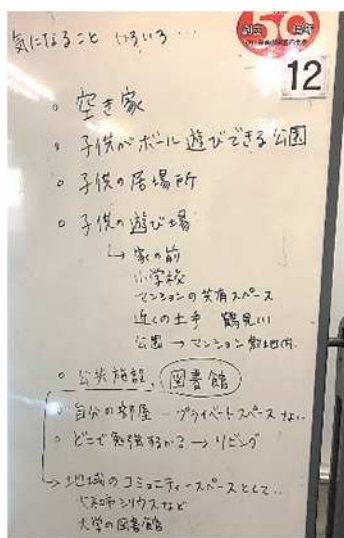 気になること いろいろ…
創立 50 周年
12
○ 空き家
○ 子供がボール遊びできる公園
○ 子供の居場所
○ 子供の遊び場
↳ 家の前
小学校
マンションの共有スペース
近くの土手 鶴見川
公園 → マンション敷地内
○ 公共施設、図書館
○ 自分の部屋 ― プライベートスペースない
○ どこで勉強するか? → リビング
→ 地域のコミュニティースペースとして‥
シリウスなど
大学の図書館